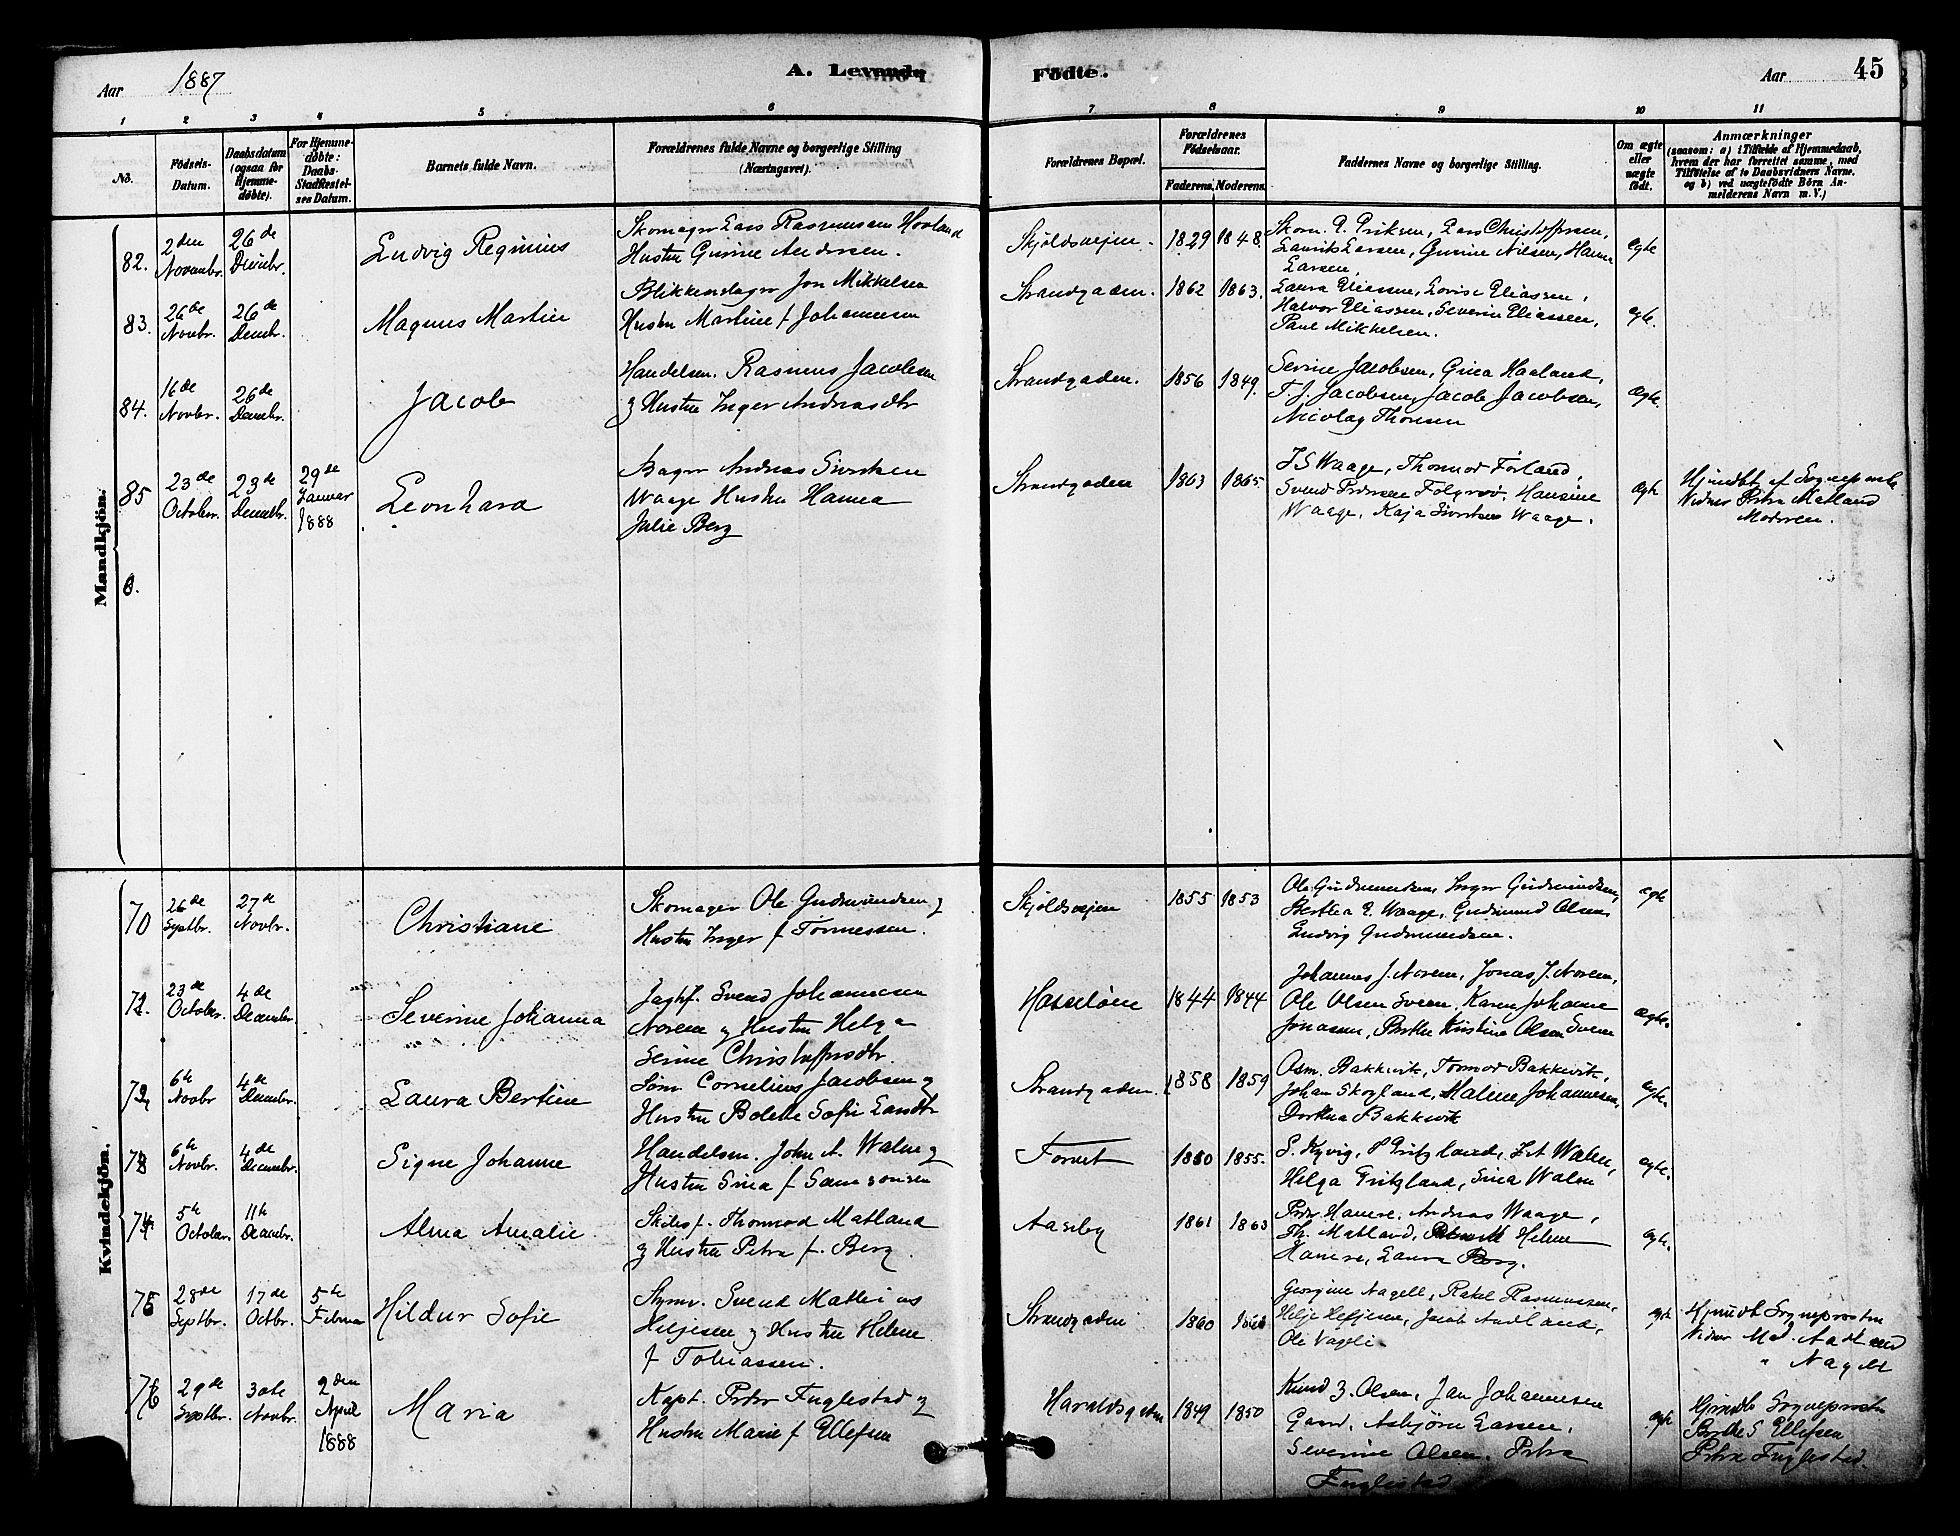 Aar 1887
A. Levende
Födte.
Aar
45
1 2 3 4 5 6 7 8 9 10 11
No.
Födsels-Datum.
Daabsdatum (ogsaa for Hjemme-döbte).
For Hjemme-döbte: Daabs-Stadfæstel-ses Datum.
Barnets fulde Navn.
Forældrenes fulde Navne og borgerlige Stilling (Næringsvei).
Forældrenes Bopæl.
Forældrenes Födselsaar.
Faderens. Moderens.
Faddernes Navne og borgerlige Stilling.
Om ægte eller uægte födt.
Anmærkninger
(saasom: a) i Tilfælde af Hjemmedaab,
hvem der har forrettet samme, med
Tilföielse af to Daabsvidners Navne,
og b) ved uægtefödte Börn An-
melderens Navn m. V.)
Mandkjön.
82. 2den Novembr. 26de Decmbr. Ludvig Reginius
Skomager Lars Rasmussen Hovland
Hustru Gurine Andersen.
Skjoldsveien. 1829 1848.
Skom. P. Eriksen, Lars Christoffersen,
Laurits Larsen, Gurine Nilsen, Hanna
Larsen
ægte
83. 26de Novbr. 26de Decmbr. Magnus Martin
Blikkenslager Jon Mikkelsen
Hustru Martine f Johannesen
Strandgaden. 1862 1863.
Laura Eliassen, Lovise Eliassen,
Halvor Eliassen, Severin Eliassen,
Paul Mikkelsen.
ægte.
84. 16de Novbr. 26de Decembr. Jacob
Handelsm. Rasmus Jacobsen
og Hustru Inger Andreasdtr
Strandgaden. 1856 1849.
Serine Jacobsen, Grina Haaland,
T. J. Jacobsen, Jacob Jacobsen,
Nicolay Thomsen
ægte.
85 23de October. 23de Decembr. 29de Januar 1888 Leonhard
Bager Andreas Sivertsen
Waage Hustru Hanna
Julie Berg
Strandgaden 1863 1865.
J S Waage, Thormod Førland,
Svend Pedersen Folgerø, Hansine
Waage, Kaja Sivertsen Waage.
ægte
Hjmdbt af Sogneprsten
Vidner Petra Matland
Moderen.
Kvindekjön.
70 26de Septbr. 27de Novbr. Christiane
Skomager Ole Gudmundsen og
Hustru Inger f Tormessen.
Skjoldsveien 1855 1853
Ole Gudmundsen, Inger Gudmundsen,
Berthea E. Waage, Gudmund Olsen,
Ludvig Gudmundsen.
ægte
71. 23de October. 4de Decembr. Severine Johanna
Jagtsf. Svend Johannesen
Norem og Hustru Helga
Serine Christoffersdtr.
Hasseløen 1844 1844
Johannes J. Norem, Jonas J. Norem,
Ole Olsen Sveen, Karen Johanne
Jonassen, Berthe Kristine Olsen Sveen
ægte.
72 6te Novbr 4de Decembr. Laura Bertine
Søm. Cornelius Jacobsen og
Hustru Bolette Sofie Larsdtr
Strandgaden. 1858 1859
Osm. Bakkevik, Tormod Bakkevik,
Johan Skogland, Malene Johannesen,
Dorthea Bakkevik
ægte.
73 6te Novbr. 4de Decembr. Signe Johanne
Handelsm. John A. Walen og
Hustru Sina f Samsonsen
Torvet 1850 1855.
Helga Eritzland, Sina Walen
ægte.
74 5te October. 11te Decembr. Alma Amalie
Skibsf. Thormod Matland
og Hustru Petra f. Berg.
Aaseby 1861 1863
Peder Hamre, Andreas Waage,
Th. Matland, Helene
Hamre, Laura Berg.
ægte.
75 28de Septbr. 17de Octbr. 5te Februar Hildur Sofie
Styrm. Svend Mathias
Heljesen og Hustru Helene
f Tobiassen.
Strandgaden 1860
Georgine Nagell, Rakel Rasmussen,
Helje Heljesen, Jacob Aadland,
Ole Vagle
ægte
Hjmdbt Sogneprsten
Vidner Mad. Aadland
" Nagell
76 29de Septbr. 30te Novbr. 2den April 1888 Maria
Kapt. Peder Fuglestad og
Hustru Marie f Ellefsen
Haraldsgaten 1849 1850
Knud Z. Olsen, Jan Johannesen
Gard, Asbjørn Larsen,
Severine Olsen, Petra
Fuglestad
ægte
Hjmdbt Sogneprsten
Berthe S Ellefsen
Petra Fuglestad.